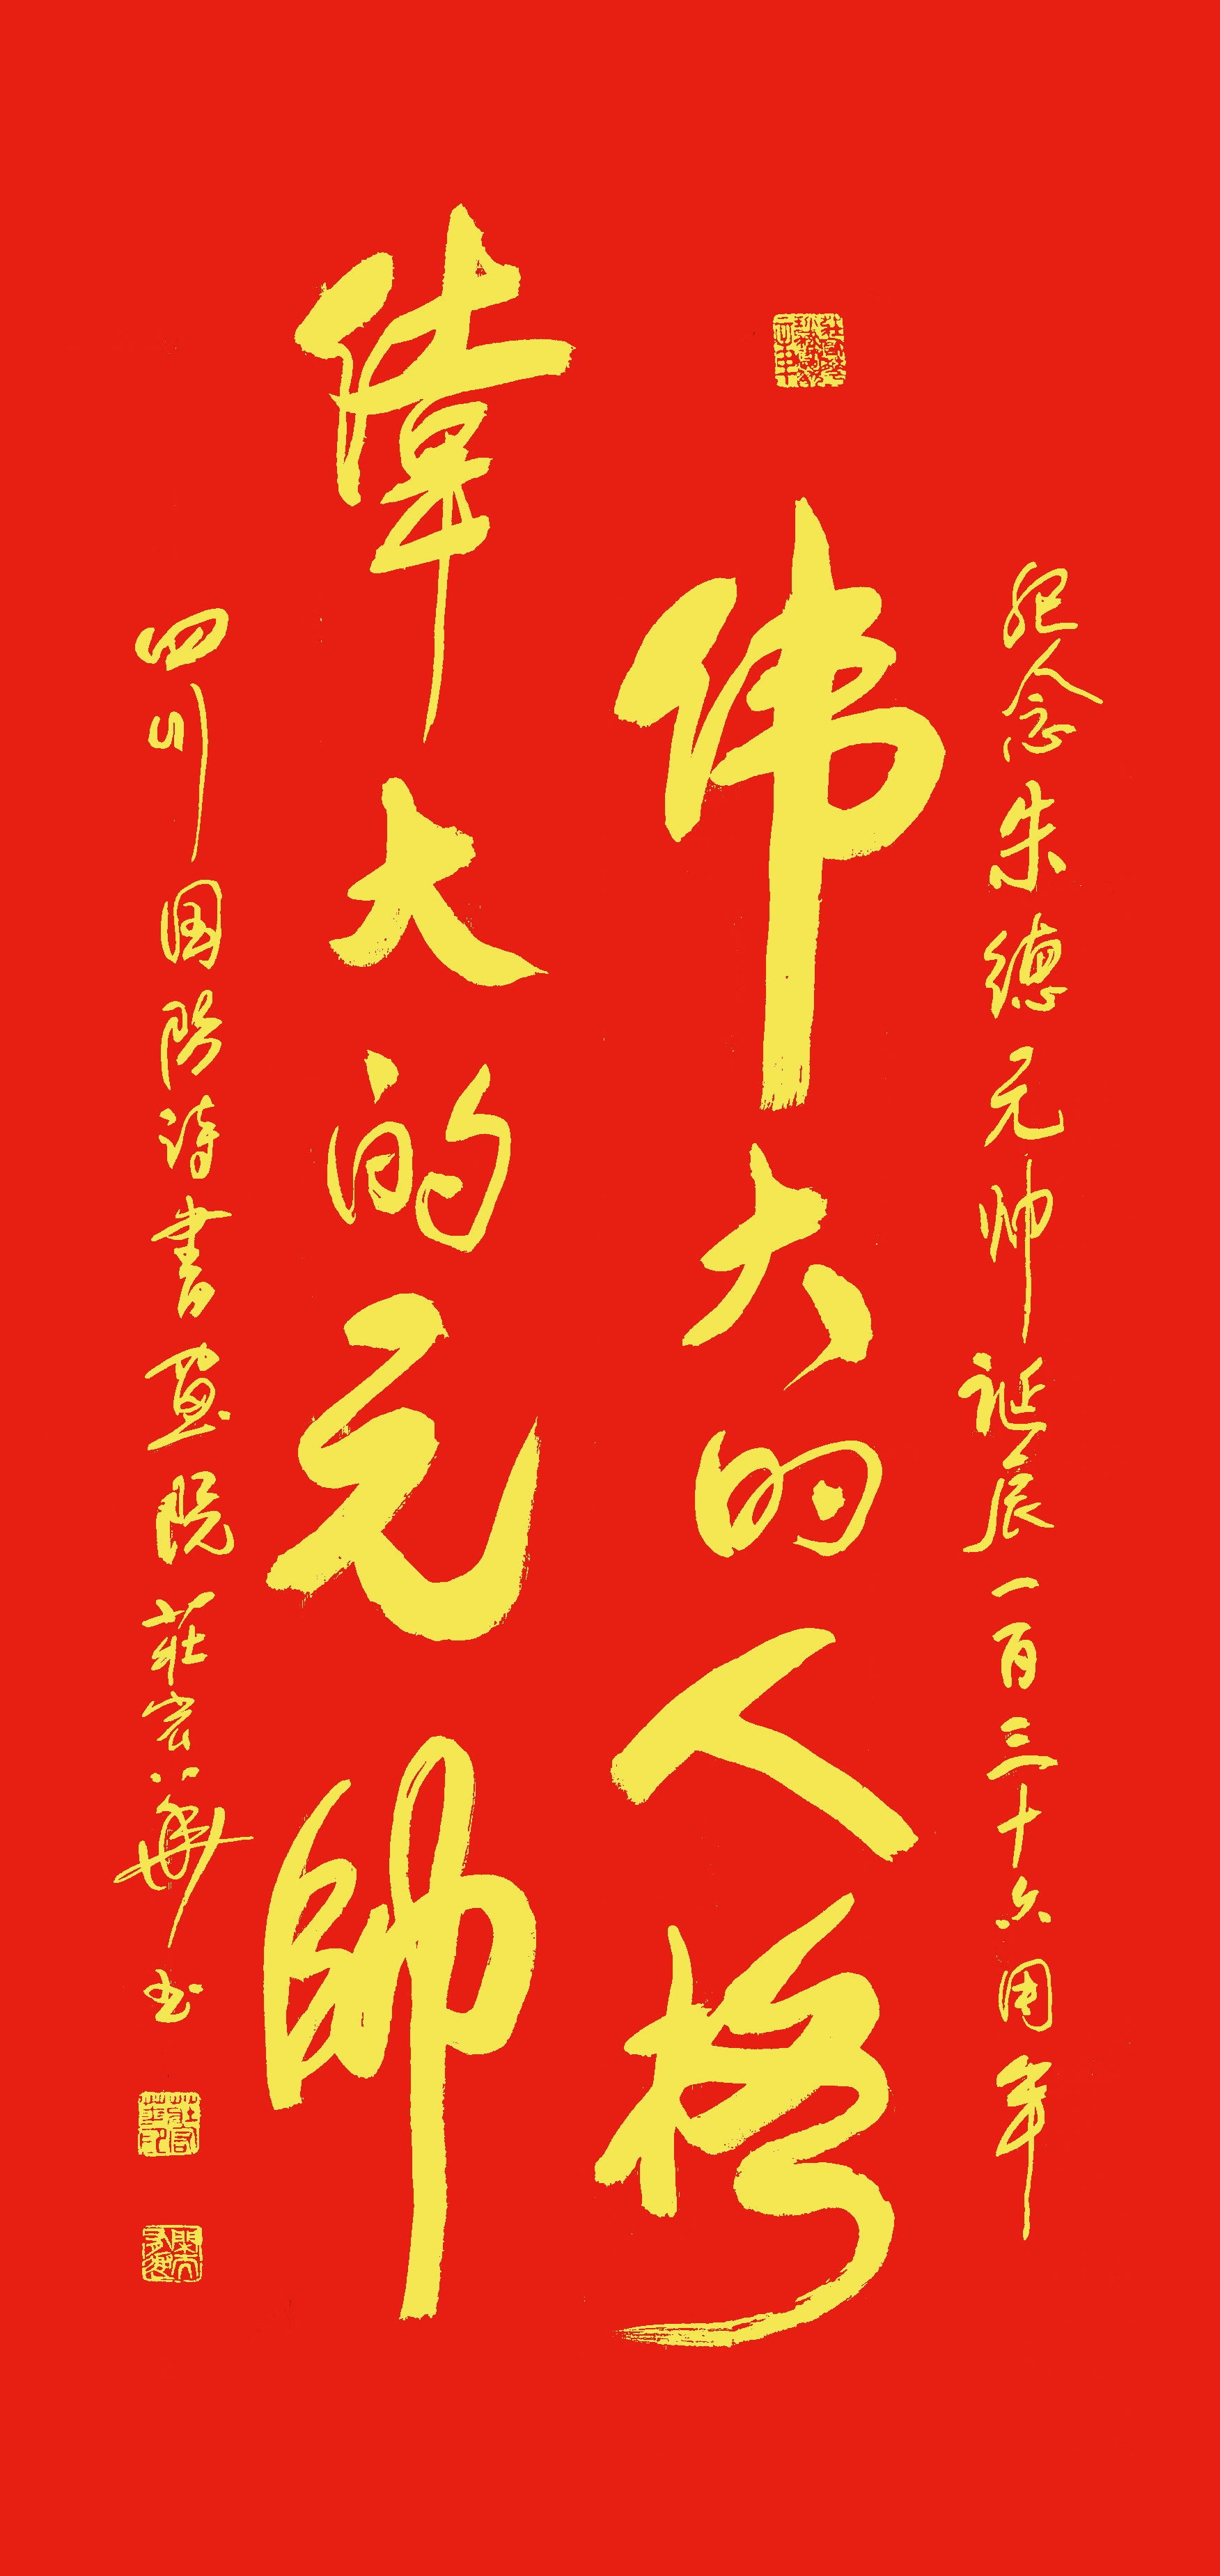 纪念朱德元帅诞辰一百三十六周年
伟大的人格
偉大的元帥
四川国防诗书画院莊宏华书